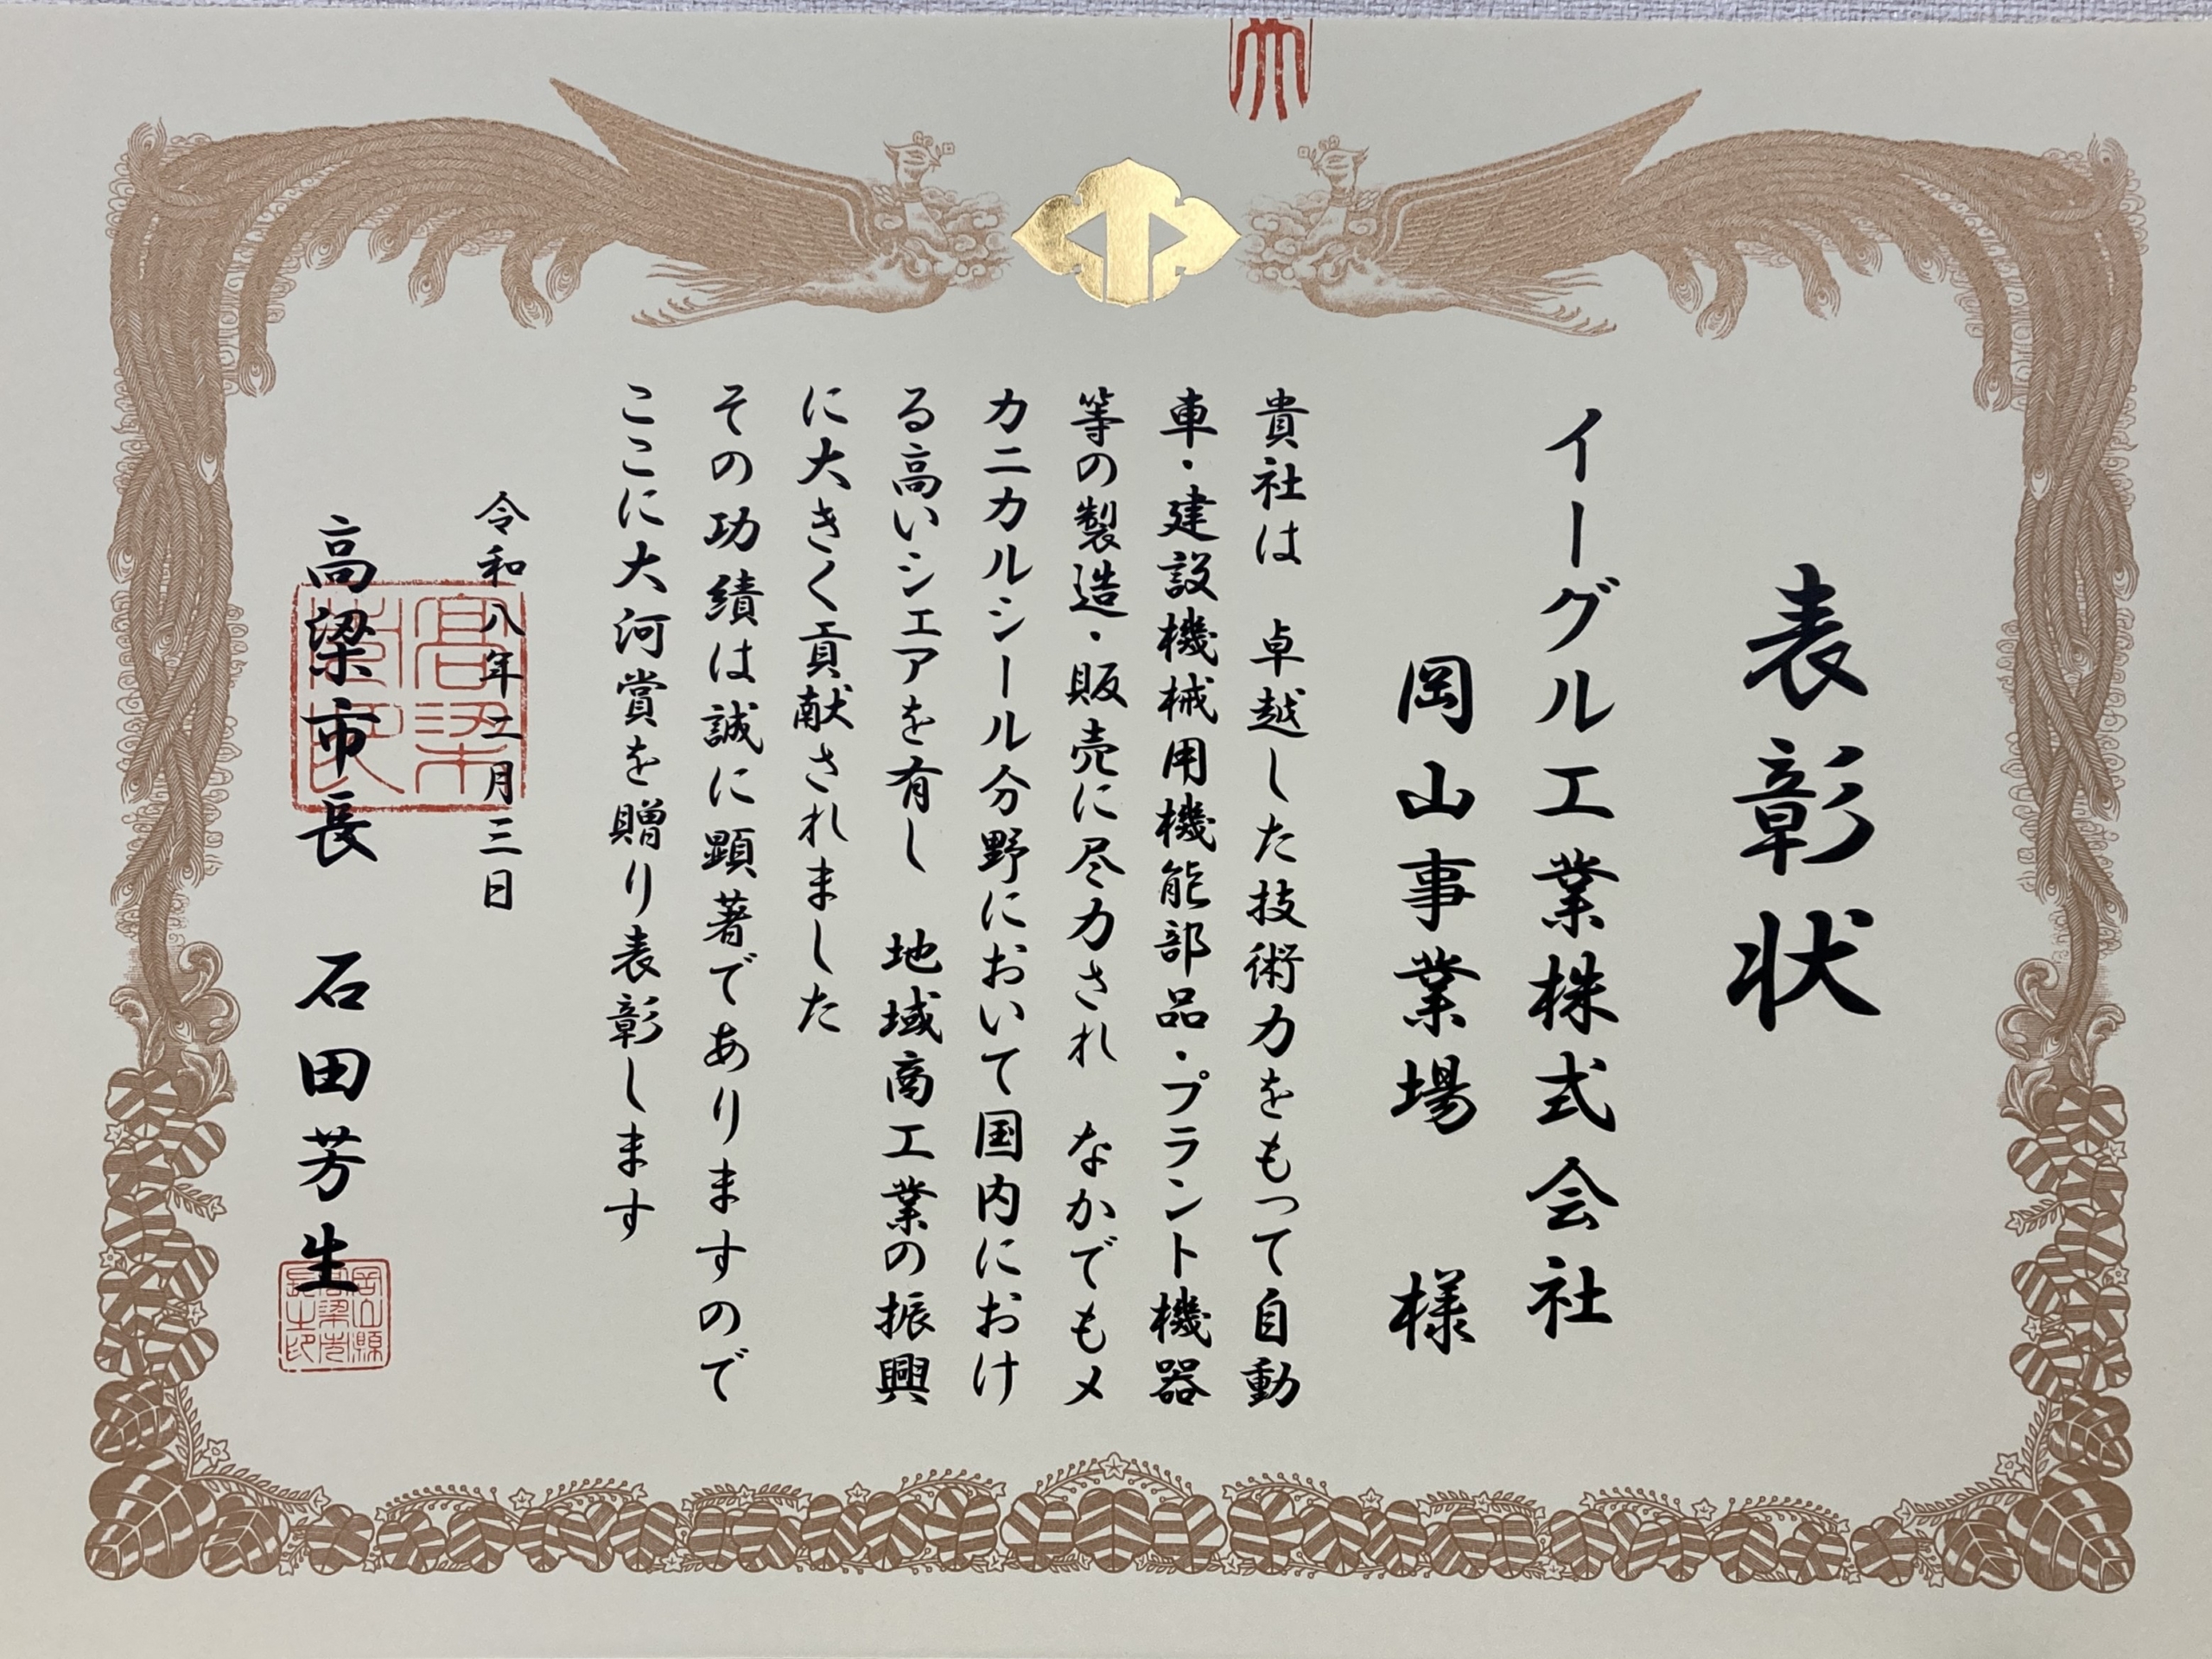 表彰状
イーグル工業株式会社
岡山事業場 様
貴社は 卓越した技術力をもって自動
車・建設機械用機能部品・プラント機器
等の製造・販売に尽力され なかでもメ
カニカルシール分野において国内におけ
る高いシェアを有し 地域商工業の振興
に大きく貢献されました
その功績は誠に顕著でありますので
ここに大河賞を贈り表彰します
令和八年二月三日
高梁市長 石田芳生